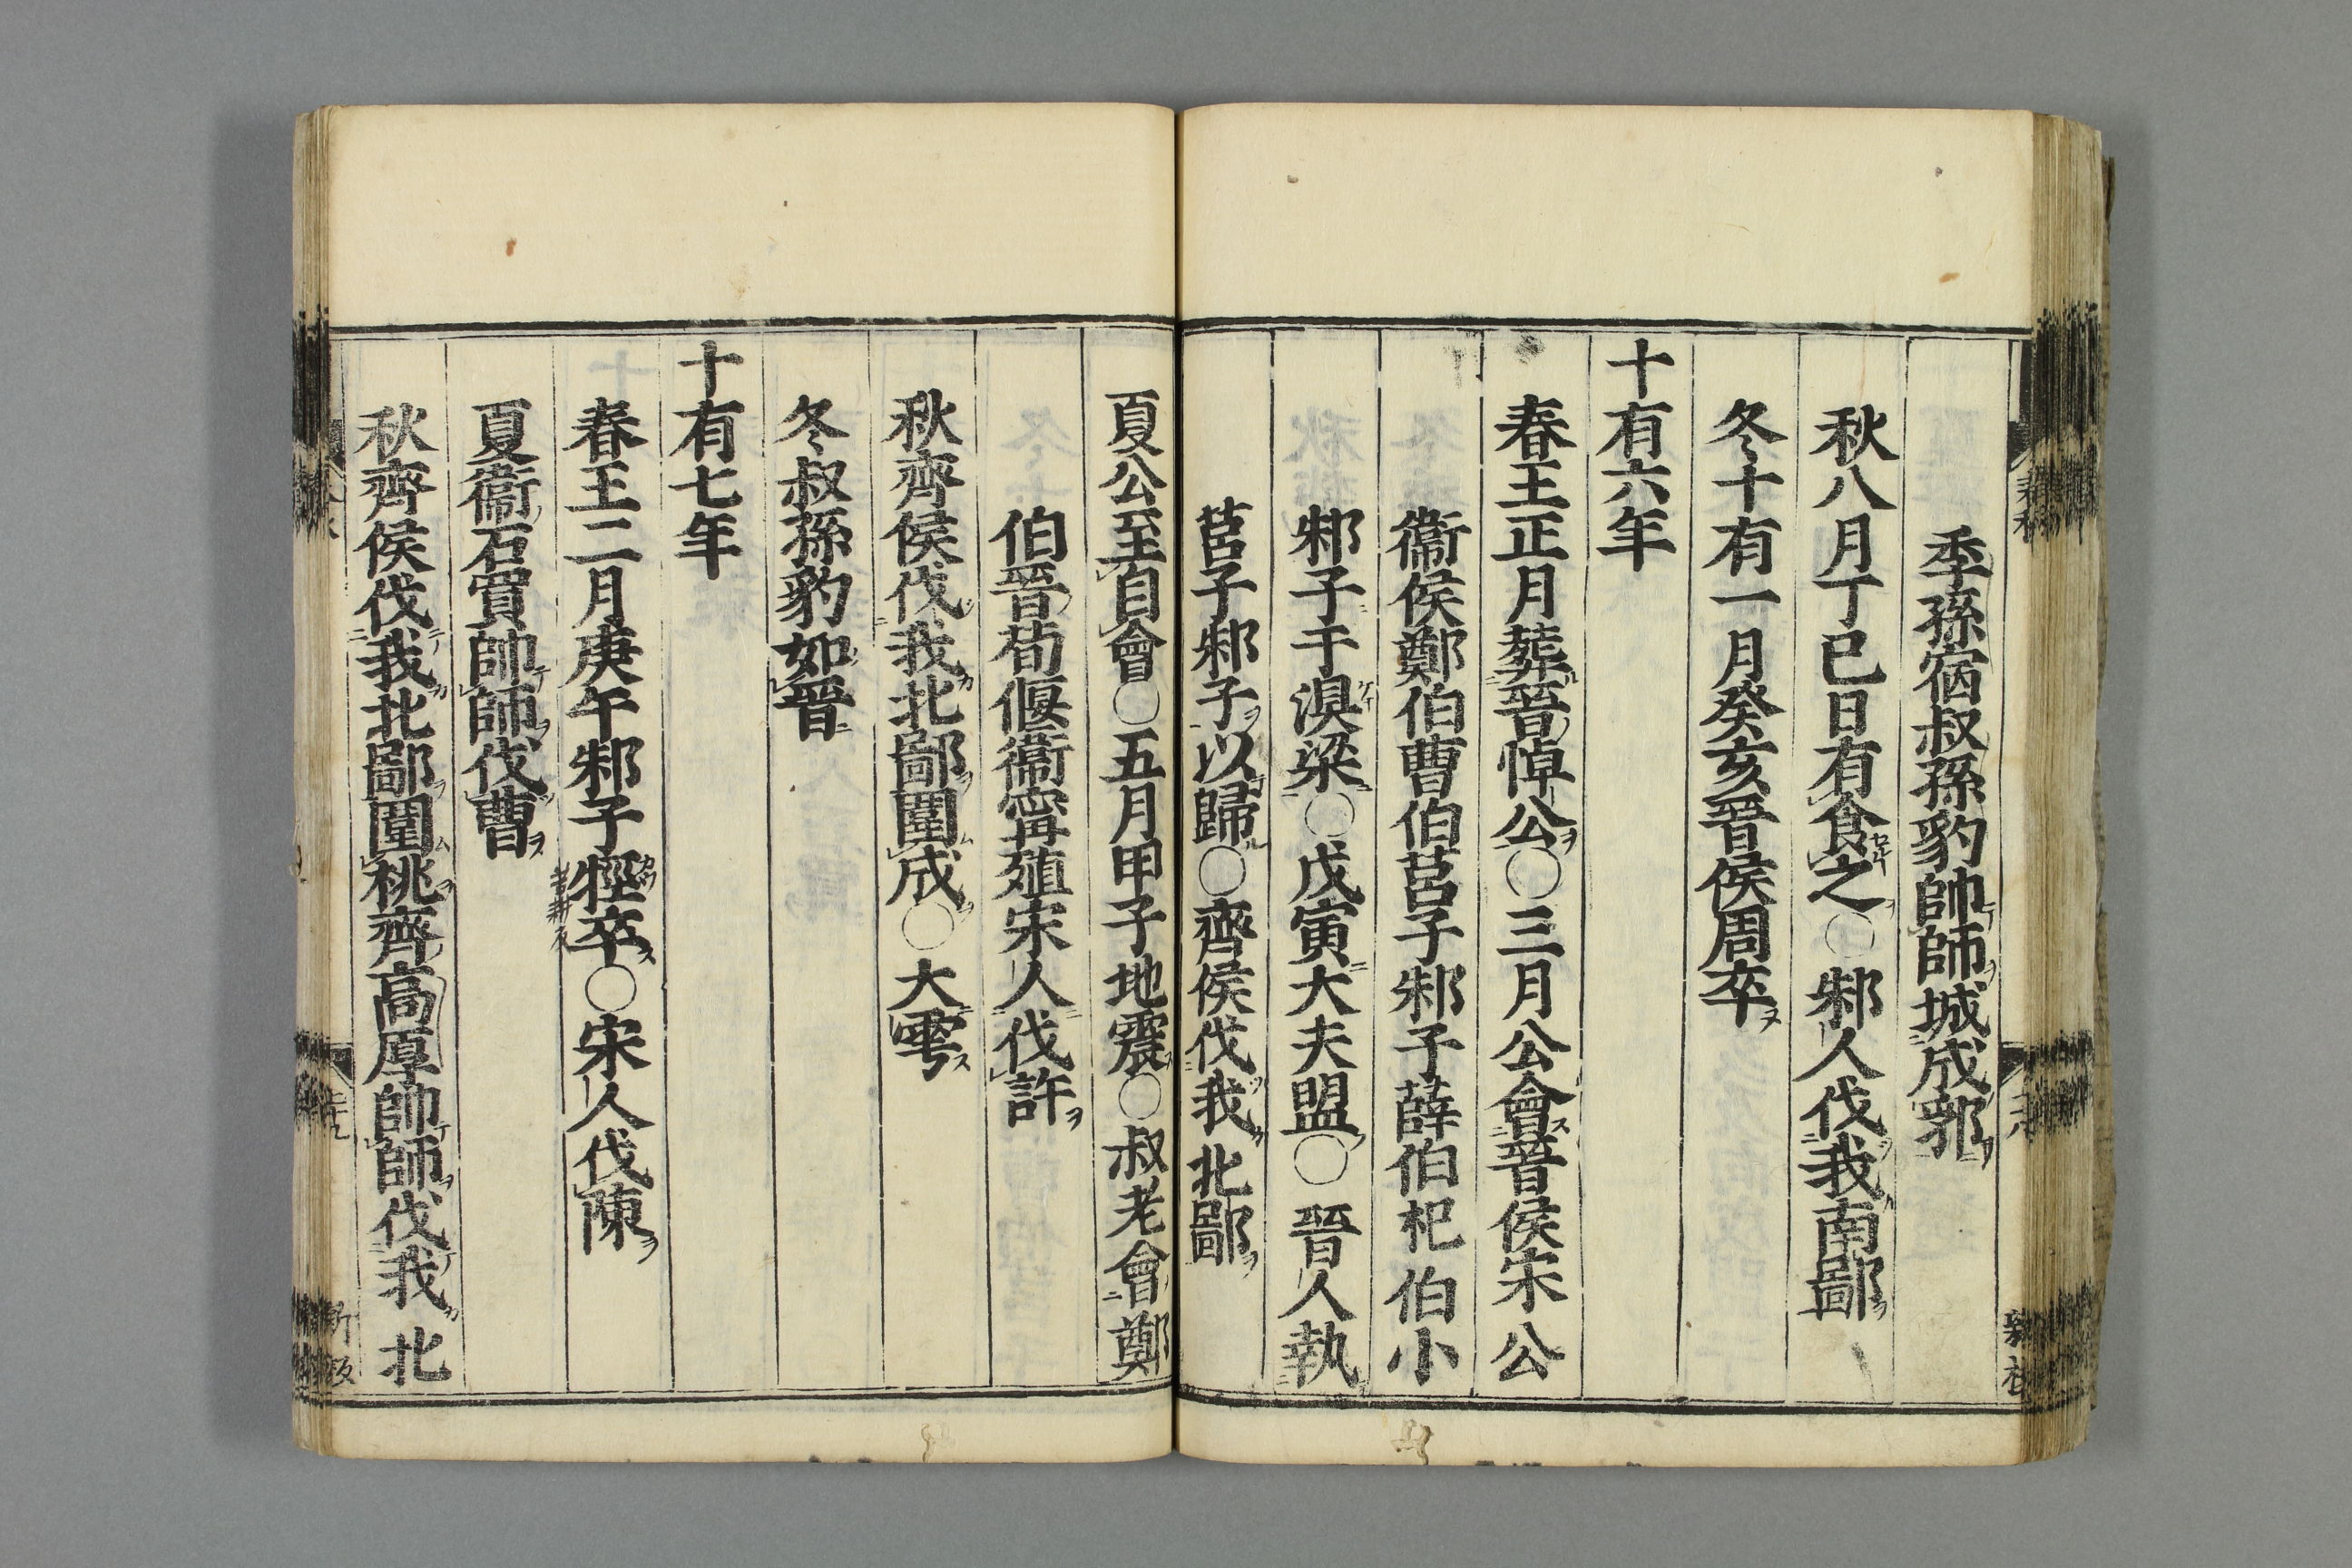 季孫宿叔孫豹帥師城成郛
秋八月丁巳日有食之○邾人伐我南鄙
冬十有一月癸亥晉侯周卒
十有六年
春王正月葬晉悼公○三月公會晉侯宋公
衞侯鄭伯曹伯莒子邾子薛伯杞伯小
邾子于溴梁○戊寅大夫盟○晉人執
莒子邾子以歸○齊侯伐我北鄙
夏公至自會○五月甲子地震○叔老會鄭
伯晉荀偃衞甯殖宋人伐許
秋齊侯伐我北鄙圍成○大雩
冬叔孫豹如晉
十有七年
春王二月庚午邾子牼卒○宋人伐陳
夏衞石買帥師伐曹
秋齊侯伐我北鄙圍桃齊高厚帥師伐我北